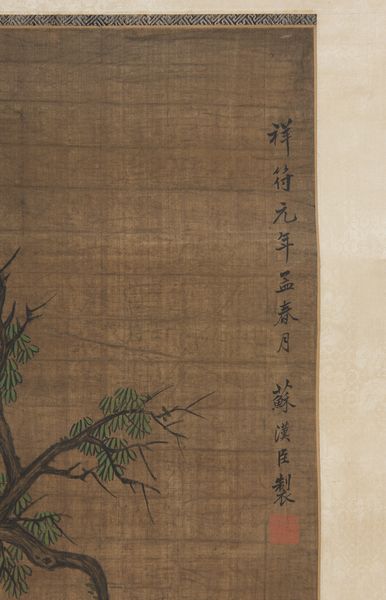 祥符元年孟春月 蘇漢臣製